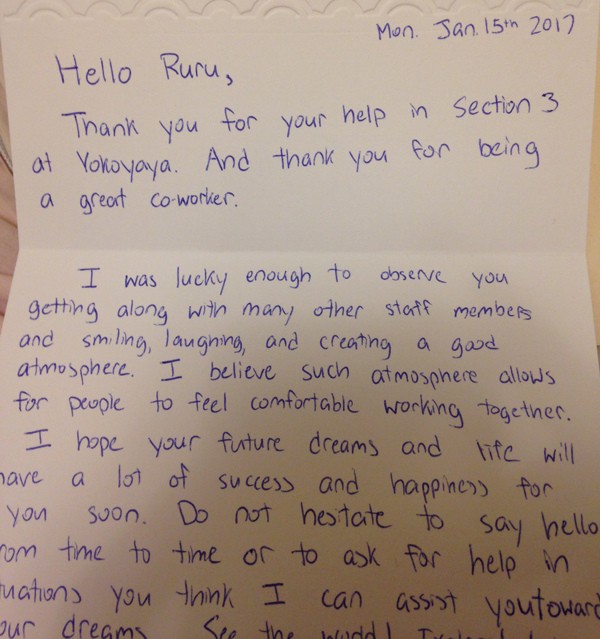 Mon. Jan. 15th 2017
Hello Ruru,
Thank you for your help in Section 3
at Yokoyaya. And thank you for being
a great co-worker.
I was lucky enough to observe you
getting along with many other staff members
and smiling, laughing, and creating a good
atmosphere. I believe such atmosphere allows
for people to feel comfortable working together.
I hope your future dreams and life will
have a lot of success and happiness for
you soon. Do not hesitate to say hello
rom time to time or to ask for help in
tuations you think I can assist you toward
our dreams. See the world!